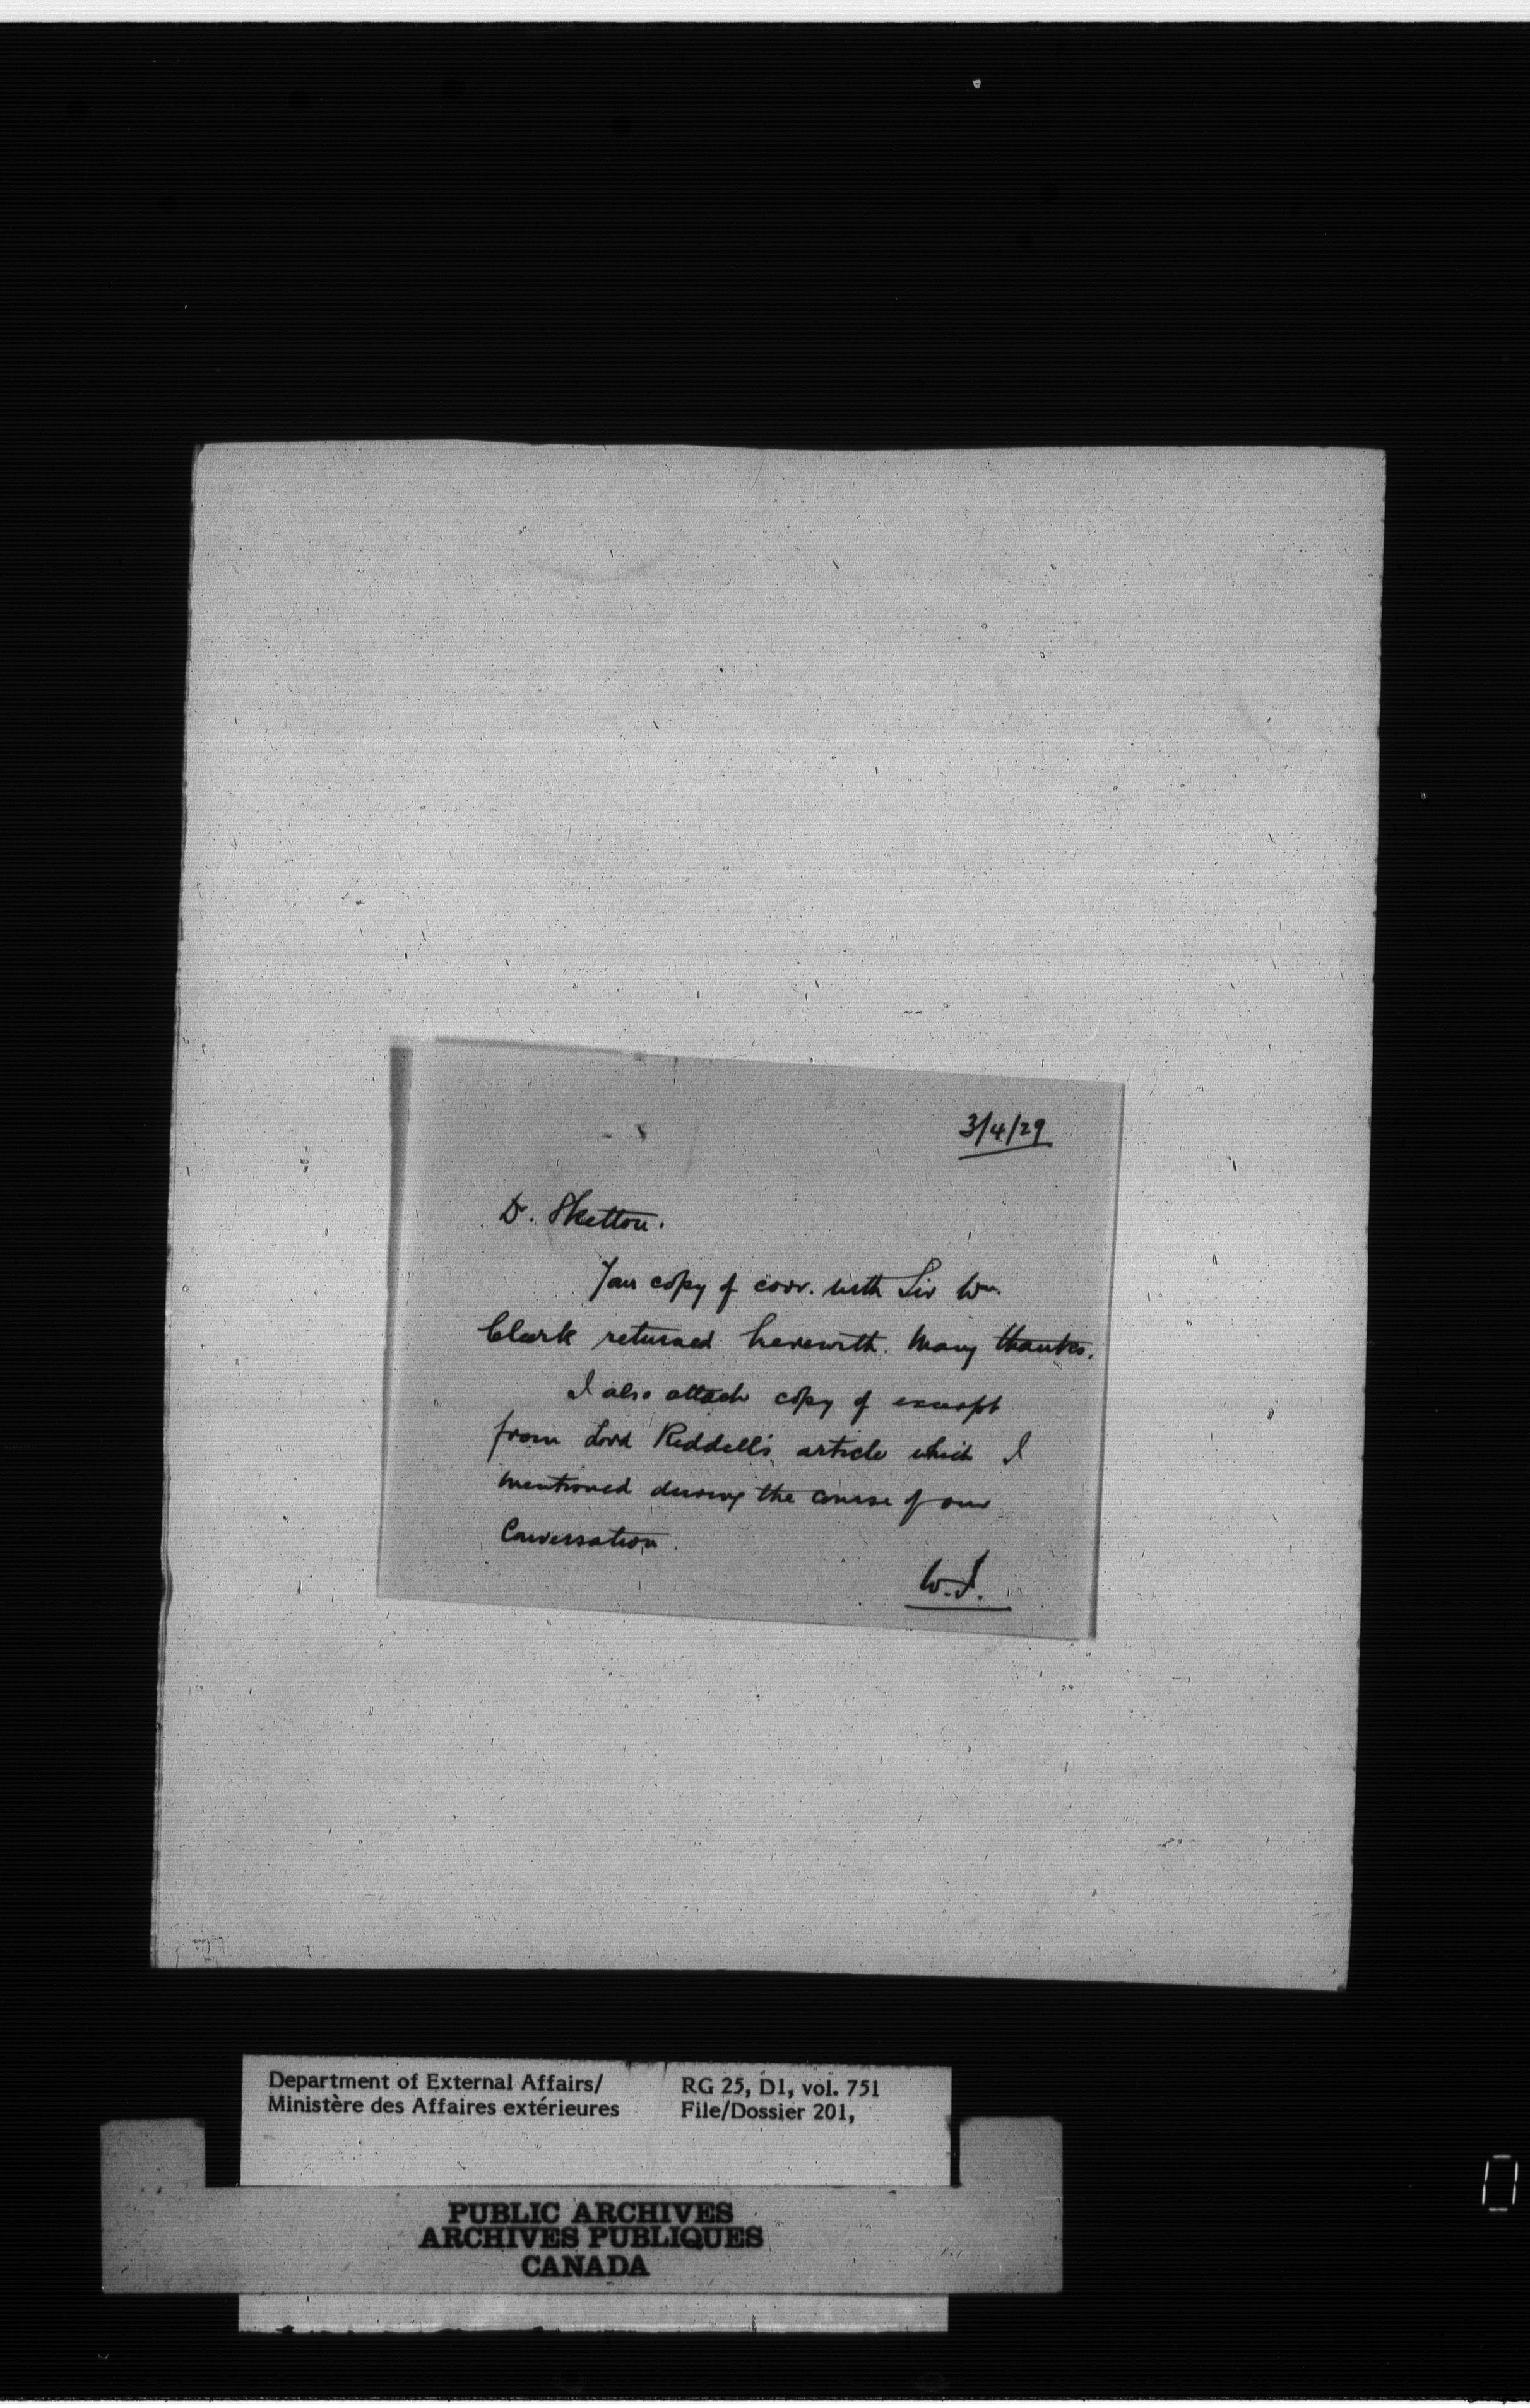 3/4/29
Dr. Skelton.
Your copy of corr. with Sir Wm.
Clark returned herewith. Many thanks.
I also attach copy of excerpt
from Lord Riddell's article which I
mentioned during the course of our
Conversation.
Department of External Affairs/
Ministère des Affaires extérieures
RG 25, D1, vol. 751
File/Dossier 201,
PUBLIC ARCHIVES
ARCHIVES PUBLIQUES
CANADA